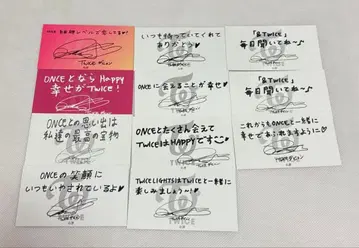 自己新レベルで恋してるよ!
TWICE
ONCEとなら Happy
幸せが TWICE!
ONCEとの思い出は
私達の最高の宝物
ONCEの笑顔に
いつもいやされているよ♥
いつも待っていてくれて
ありがとう♥
ONCEに会えることが幸せ♥
ONCEとたくさん会えて
TWICEはHAPPYです♡
TWICELIGHTSはTWICEと一緒に
楽しみましょう〜!
「&TWICE」
毎日聞いてね〜♪
「&TWICE」
毎日聞いてね〜♪
これからもONCEと一緒に
幸せであふれますように♡